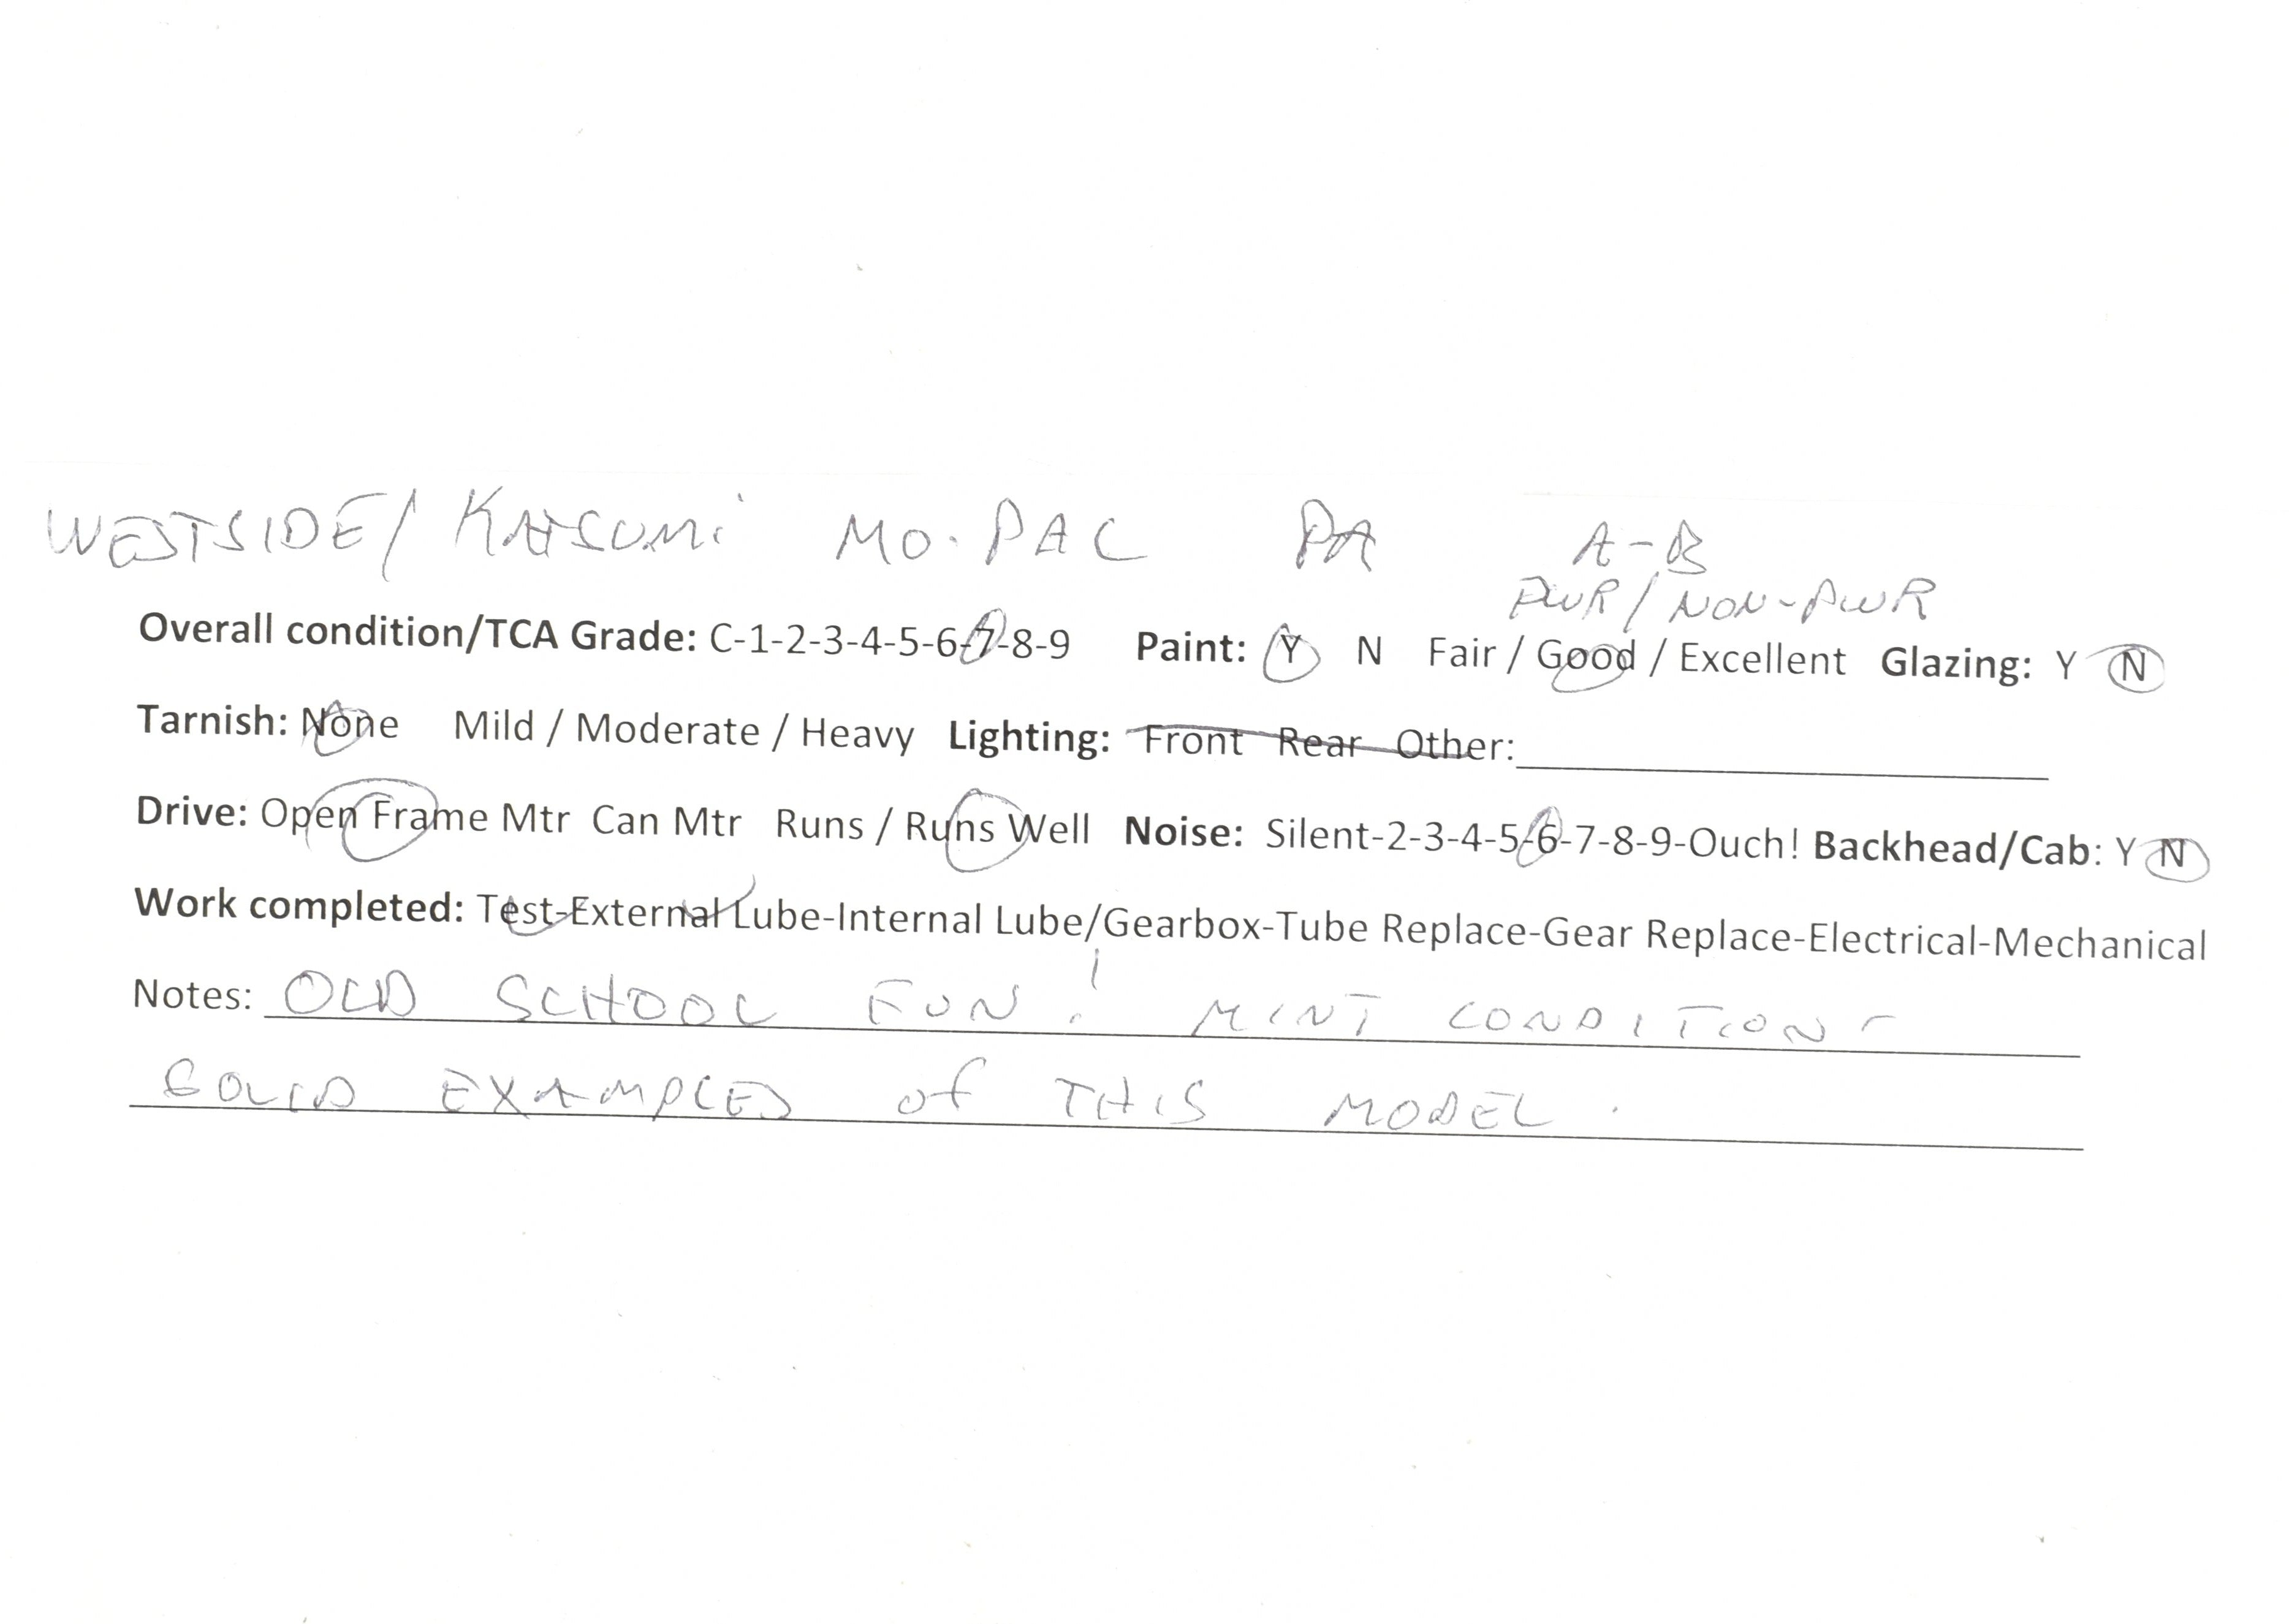 WESTSIDE/ KATSUMi MO. PAC PA A-B
PWR/NON-PWR
Overall condition/TCA Grade: C-1-2-3-4-5-6-7-8-9 Paint: Y N Fair / Good / Excellent Glazing: Y N
Tarnish: None Mild / Moderate / Heavy Lighting: Front Rear Other:
Drive: Open Frame Mtr Can Mtr Runs / Runs Well Noise: Silent-2-3-4-5-6-7-8-9-Ouch! Backhead/Cab: Y N
Work completed: Test-External Lube-Internal Lube/Gearbox-Tube Replace-Gear Replace-Electrical-Mechanical
Notes: OLD SCHOOL FUN! MINT CONDITION -
SOLID EXAMPLES of THIS MODEL.